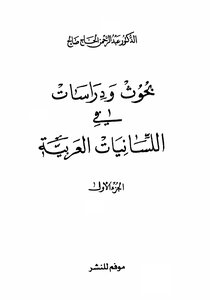 الدكتور عبد الرحمن الحاج صالح
بحوث ودراسات
في
اللسانيات العربية
الجزء الأول
موفم للنشر